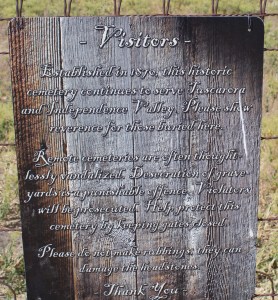 - Visitors -
Established in 1870, this historic
cemetery continues to serve Tuscarora
and Independence Valley. Please show
reverence for those buried here.
Remote cemeteries are often thought-
lessly vandalized. Desecration of grave-
yards is a punishable offence. Violators
will be prosecuted. Help protect this
cemetery by keeping gates closed.
Please do not make rubbings; they can
damage the headstones.
Thank You -